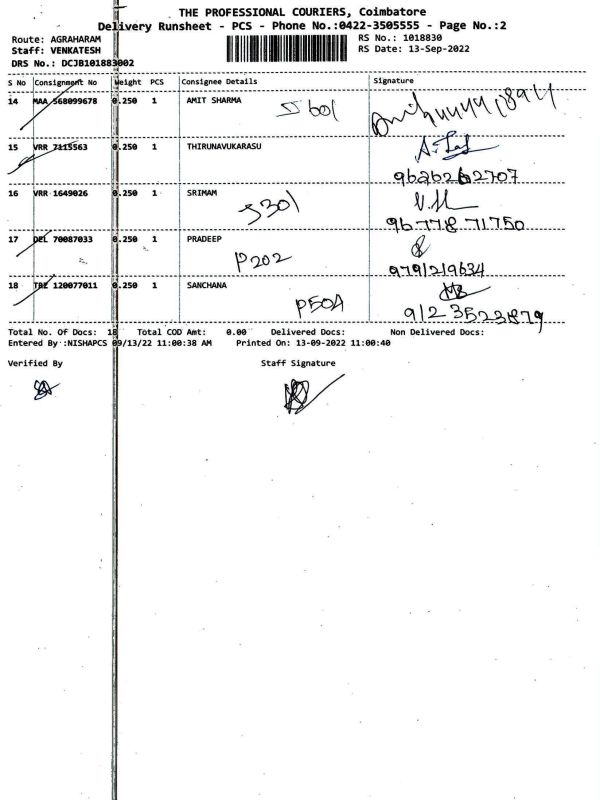 THE PROFESSIONAL COURIERS, Coimbatore
Delivery Runsheet - PCS - Phone No.:0422-3505555 - Page No.:2
Route: AGRAHARAM RS No.: 1018830
Staff: VENKATESH RS Date: 13-Sep-2022
DRS No.: DCJB101883002
S No Consignment No Weight PCS Consignee Details Signature
14 MAA 568099678 0.250 1 AMIT SHARMA S601
15 VRR 7115563 0.250 1 THIRUNAVUKARASU
9626262707
16 VRR 1649026 0.250 1 SRIMAM
S301 96 778 71750
17 DEL 70087033 0.250 1 PRADEEP
P202 9791219634
18 TRZ 120077011 0.250 1 SANCHANA
P504 9123523879
Total No. Of Docs: 18 Total COD Amt: 0.00 Delivered Docs: Non Delivered Docs:
Entered By :NISHAPCS 09/13/22 11:00:38 AM Printed On: 13-09-2022 11:00:40
Verified By Staff Signature